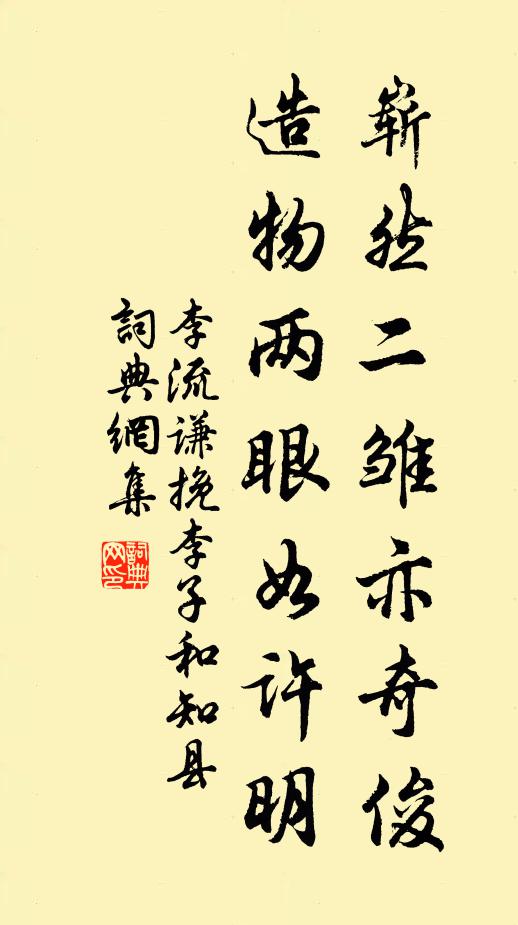 崭然二雏亦奇俊
造物两眼如许明
李流谦挽李子和知县
詞典網集
詞典网印